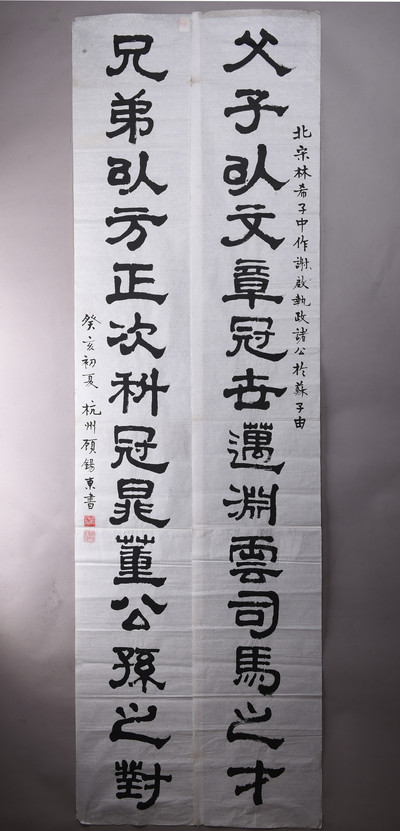 北宋林希子中作謝啟執政諸公於蘇子由
父子以文章冠世邁淵雲司馬之才
兄弟以方正决科冠晁董公孫之對
癸亥初夏 杭州顧錫東書